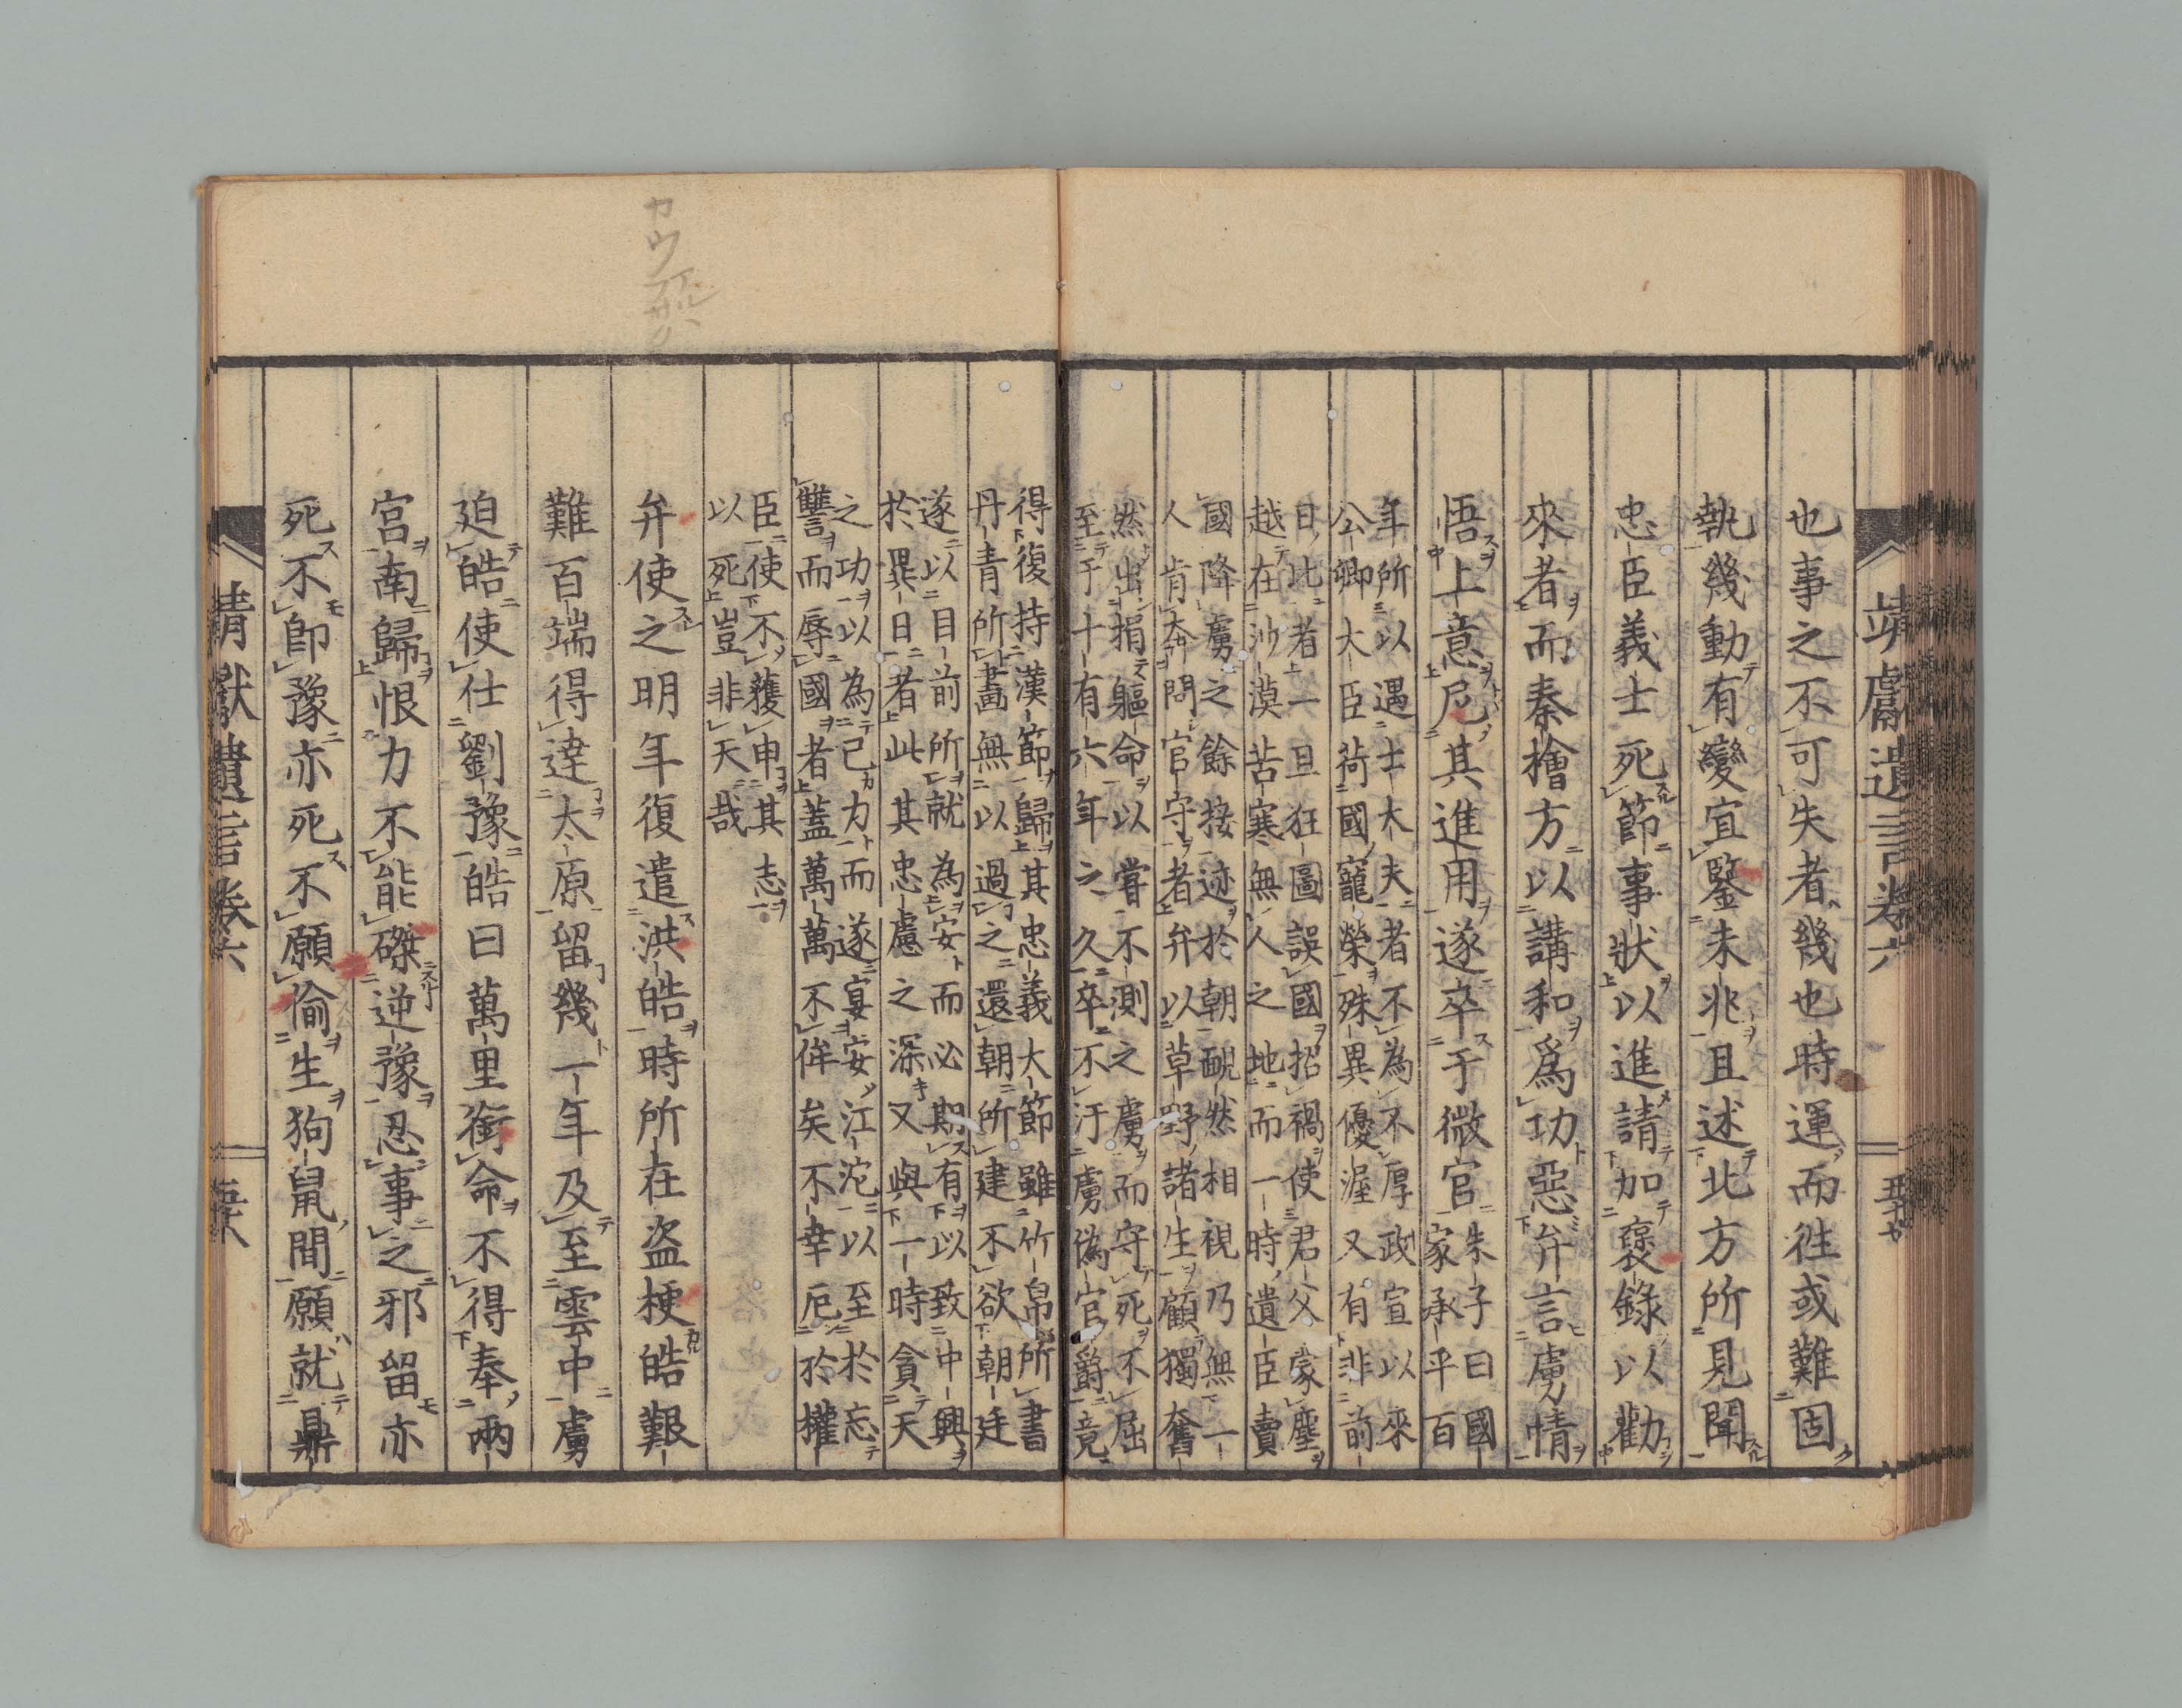 靖獻遺言卷六
也事之不可失者幾也時運而往或難固
執幾動有變宜鑒未兆且述北方所見聞
忠臣義士死節事狀以進請加褒錄以勸
來者而秦檜方以講和爲功惡弁言虜情
悟上意尼其進用遂卒于微官
朱子曰國
家承平百
年所以遇士大夫者不為不厚政宣以來
公卿大臣荷國寵榮殊異優渥又有非前
日比者一旦狂圖誤國招禍使君父蒙塵
越在沙漠苦寒無人之地而一時遺臣賣
國降虜之餘接迹於朝靦然相視乃無一
人肯奔問官守者弁以草野諸生顧獨奮
然出捐軀命以嘗不測之虜而守死不屈
至于十有六年之久卒不汙虜偽官爵竟
得復持漢節歸其忠義大節雖竹帛所書
丹青所畫無以過之還朝所建不欲朝廷
遂以目前所就為安而必期有以致中興
於異日者此其忠慮之深又與一時貪天
之功以為己力而遂宴安江沱以至於忘
讐而辱國者蓋萬萬不侔矣不幸厄於權
臣使不獲申其志
以死豈非天哉
弁使之明年復遣洪皓時所在盜梗皓艱
難百端得達太原留幾一年及至雲中虜
廹皓使仕劉豫皓曰萬里銜命不得奉兩
宮南歸恨力不能磔逆豫忍事之邪留亦
死不卽豫亦死不願偷生狗鼠間願就鼎
靖獻遺言卷六